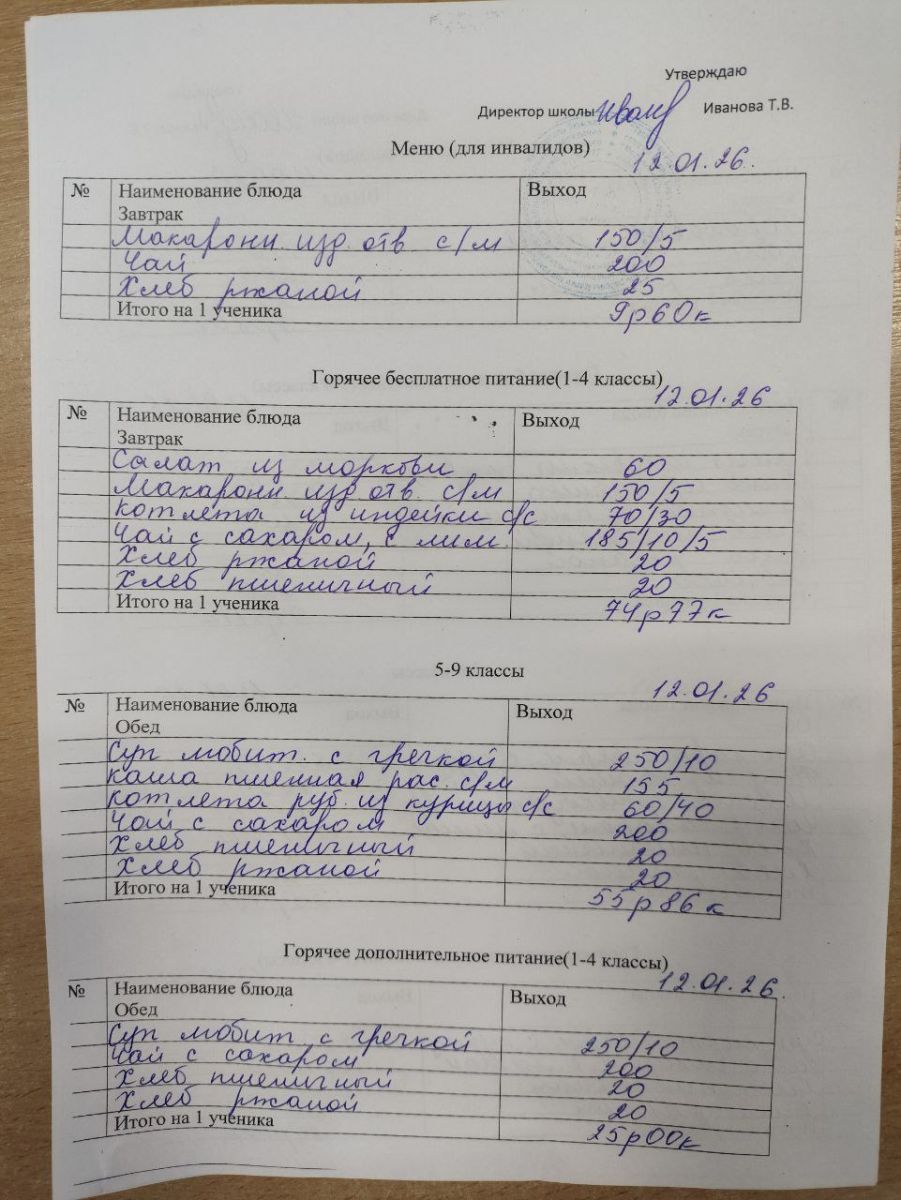 Утверждаю
Директор школы Иванова Т.В.
Меню (для инвалидов)
12.01.26.
№ Наименование блюда Выход
Завтрак
Макарон. изд. отв. с/м 150/5
Чай 200
Хлеб ржаной 25
Итого на 1 ученика 9р60к
Горячее бесплатное питание(1-4 классы)
12.01.26
№ Наименование блюда Выход
Завтрак
Салат из моркови 60
Макарон. изд. отв. с/м 150/5
котлета из индейки с/с 70/30
Чай с сахаром, с лим. 185/10/5
Хлеб ржаной 20
Хлеб пшеничный 20
Итого на 1 ученика 74р77к
5-9 классы
12.01.26
№ Наименование блюда Выход
Обед
Суп любит. с гречкой 250/10
каша пшенная рас. с/м 155
котлета руб. из курицы с/с 60/40
Чай с сахаром 200
Хлеб пшеничный 20
Хлеб ржаной 20
Итого на 1 ученика 55р86к
Горячее дополнительное питание(1-4 классы)
12.01.26.
№ Наименование блюда Выход
Обед
Суп любит. с гречкой 250/10
Чай с сахаром 200
Хлеб пшеничный 20
Хлеб ржаной 20
Итого на 1 ученика 25р00к